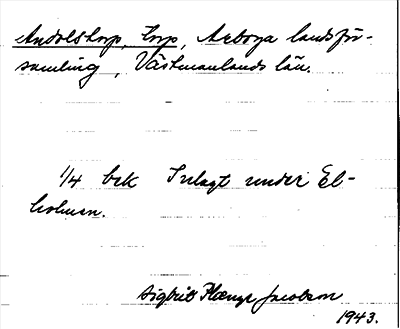 Andolstorp, torp, Arboga landsför-
samling, Västmanlands län.
1/4 bek Inlagt under El-
holmen.
Sigbrit Plænge Jacobson
1943.